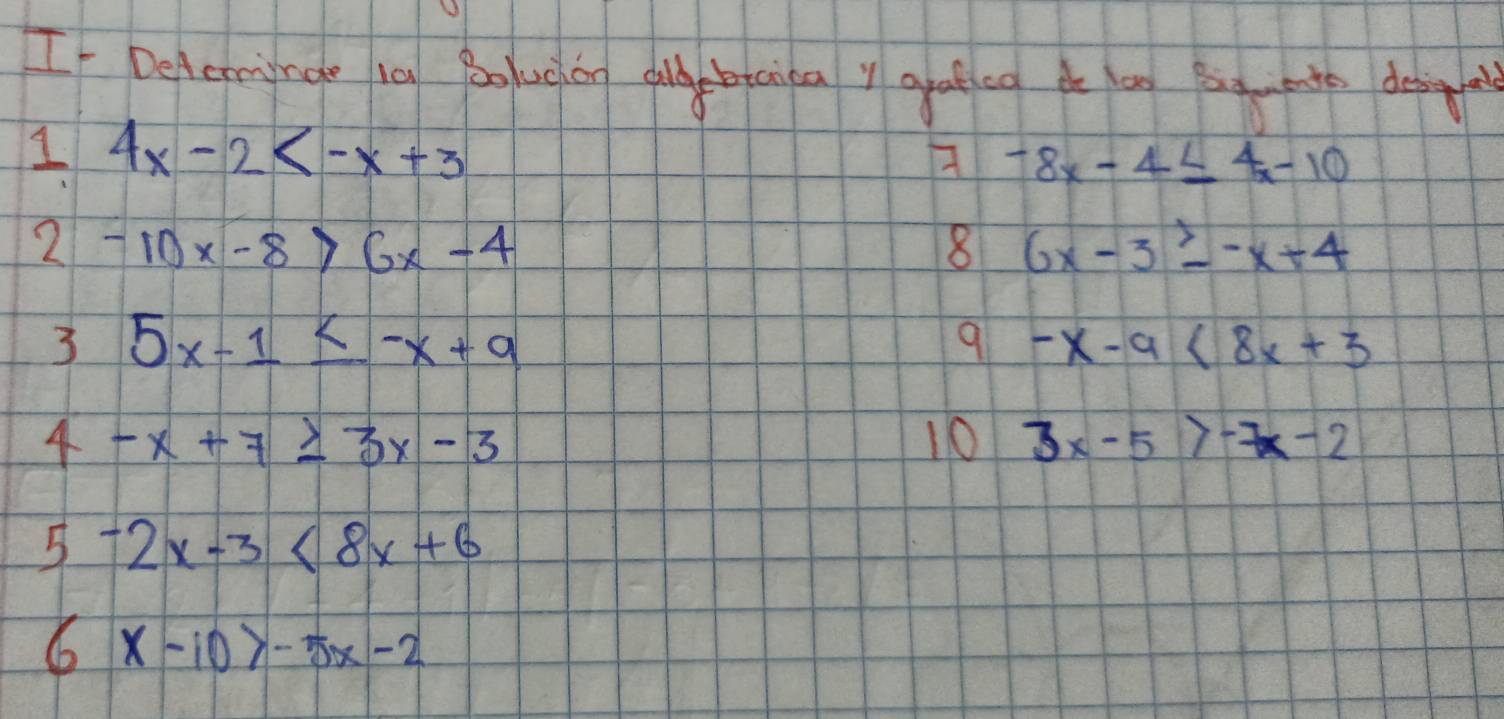 I- Determinar la Solución algebraica y grafica de las siguiente desiguald
1. 4x - 2 < -x + 3
2 -10x - 8 > 6x - 4
3 5x - 1 ≤ -x + 9
4 -x + 7 ≥ 3x - 3
5 -2x - 3 < 8x + 6
6 x - 10 > - 5x - 2
7 -8x - 4 ≤ 4x - 10
8 6x - 3 ≥ -x + 4
9 -x - 9 < 8x + 3
10 3x - 5 > -7x - 2